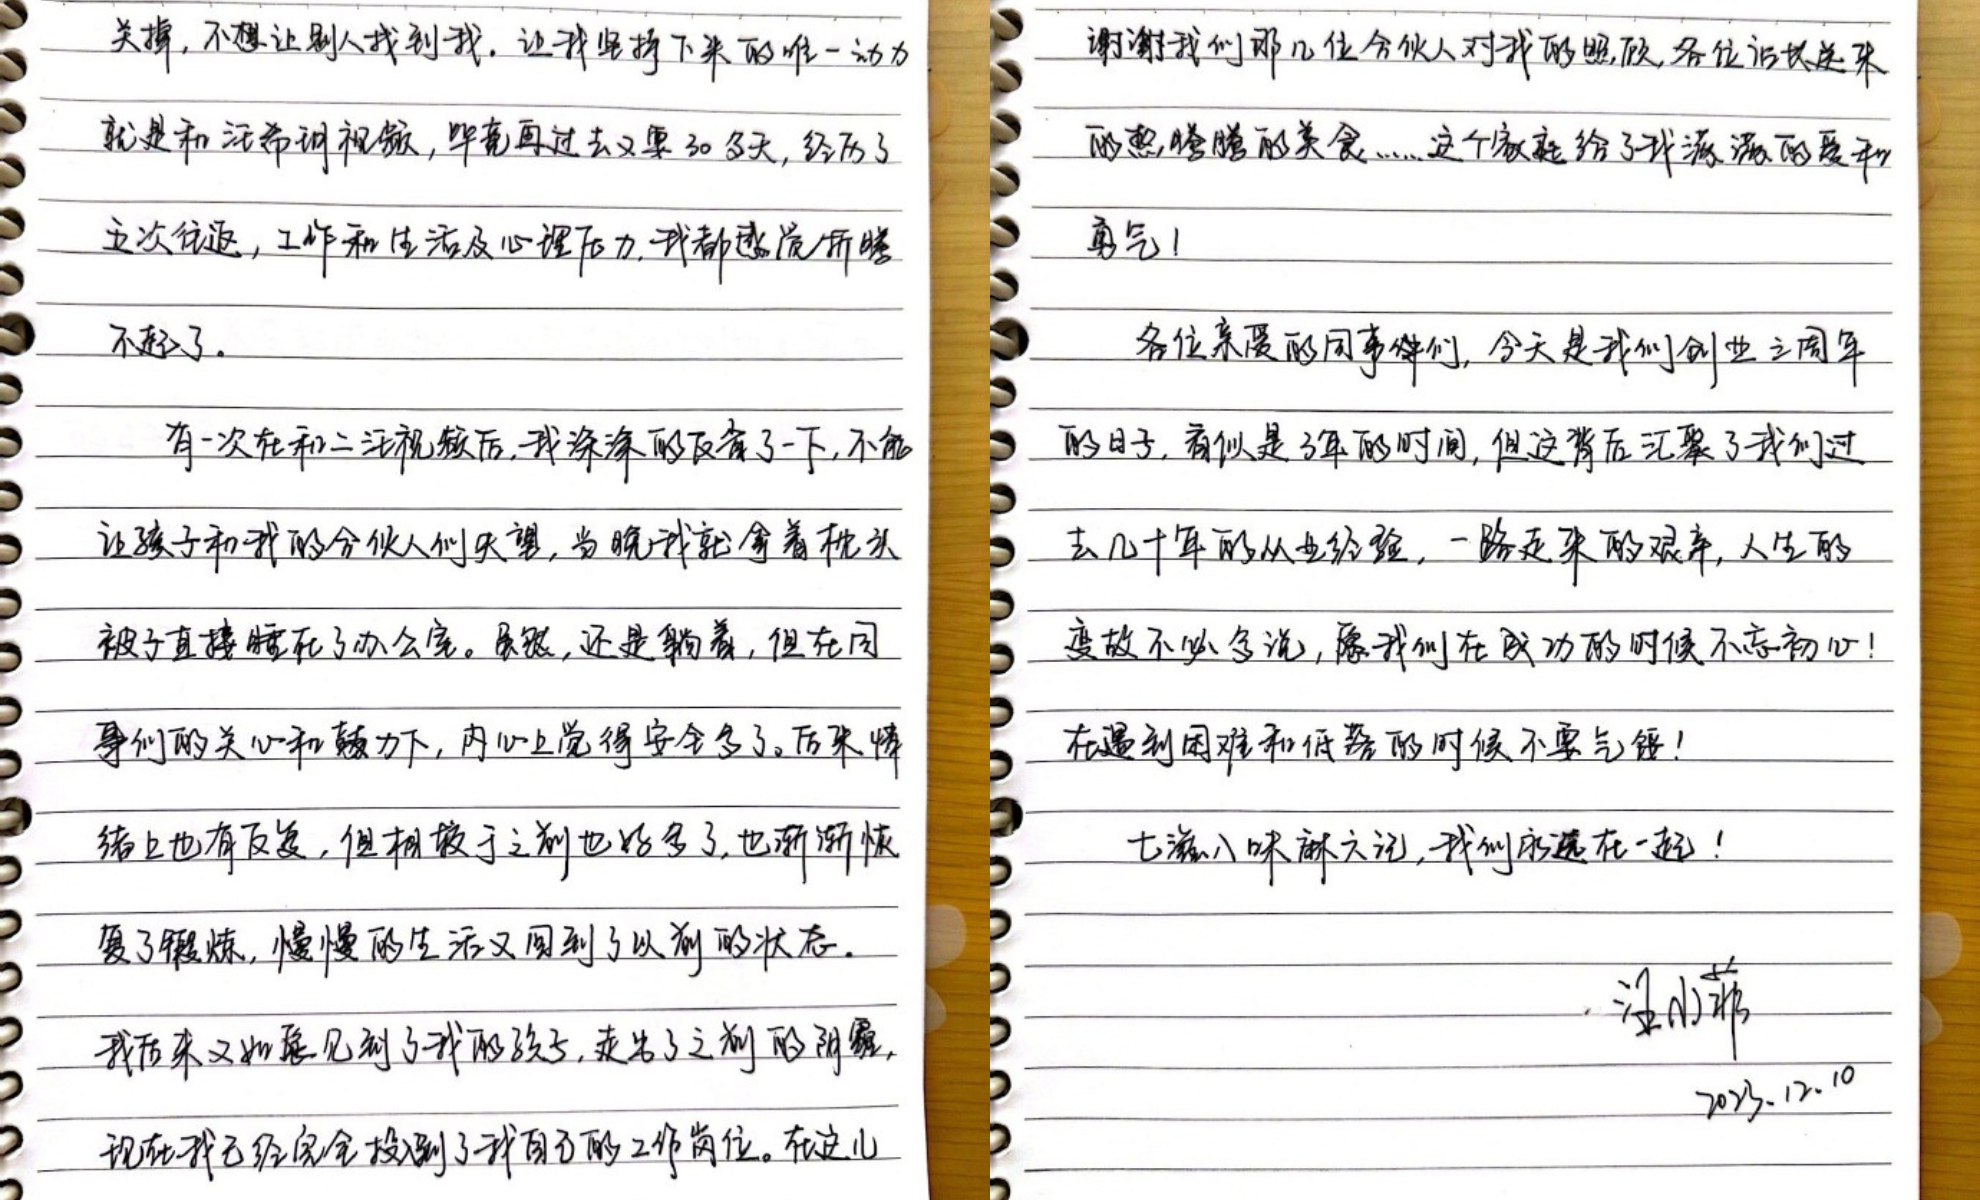 关掉，不想让别人找到我。让我坚持下来的唯一动力
就是和汪希玥视频，毕竟再过去又要30多天，经历了
五次往返，工作和生活及心理压力，我都感觉折腾
不起了。
有一次在和二汪视频后，我深深的反省了一下，不能
让孩子和我的合伙人们失望，当晚我就拿着枕头
被子直接睡在了办公室。虽然，还是躺着，但在同
事们的关心和鼓励下，内心上觉得安全多了。后来情
绪上也有反复，但相较于之前也好多了，也渐渐恢
复了锻炼，慢慢的生活又回到了以前的状态。
我后来又如愿见到了我的孩子，走出了之前的阴霾，
现在我已经完全投入到了我自己的工作岗位。在这儿
谢谢我们那几位合伙人对我的照顾，各位店长送来
的热腾腾的美食……这个家庭给了我满满的爱和
勇气！
各位亲爱的同事伴们，今天是我们创业三周年
的日子，看似是3年的时间，但这背后汇聚了我们过
去几十年的从业经验，一路走来的艰辛，人生的
变故不必多说，愿我们在成功的时候不忘初心！
在遇到困难和低谷的时候不要气馁！
七滋八味麻六记，我们永远在一起！
汪小菲
2023.12.10